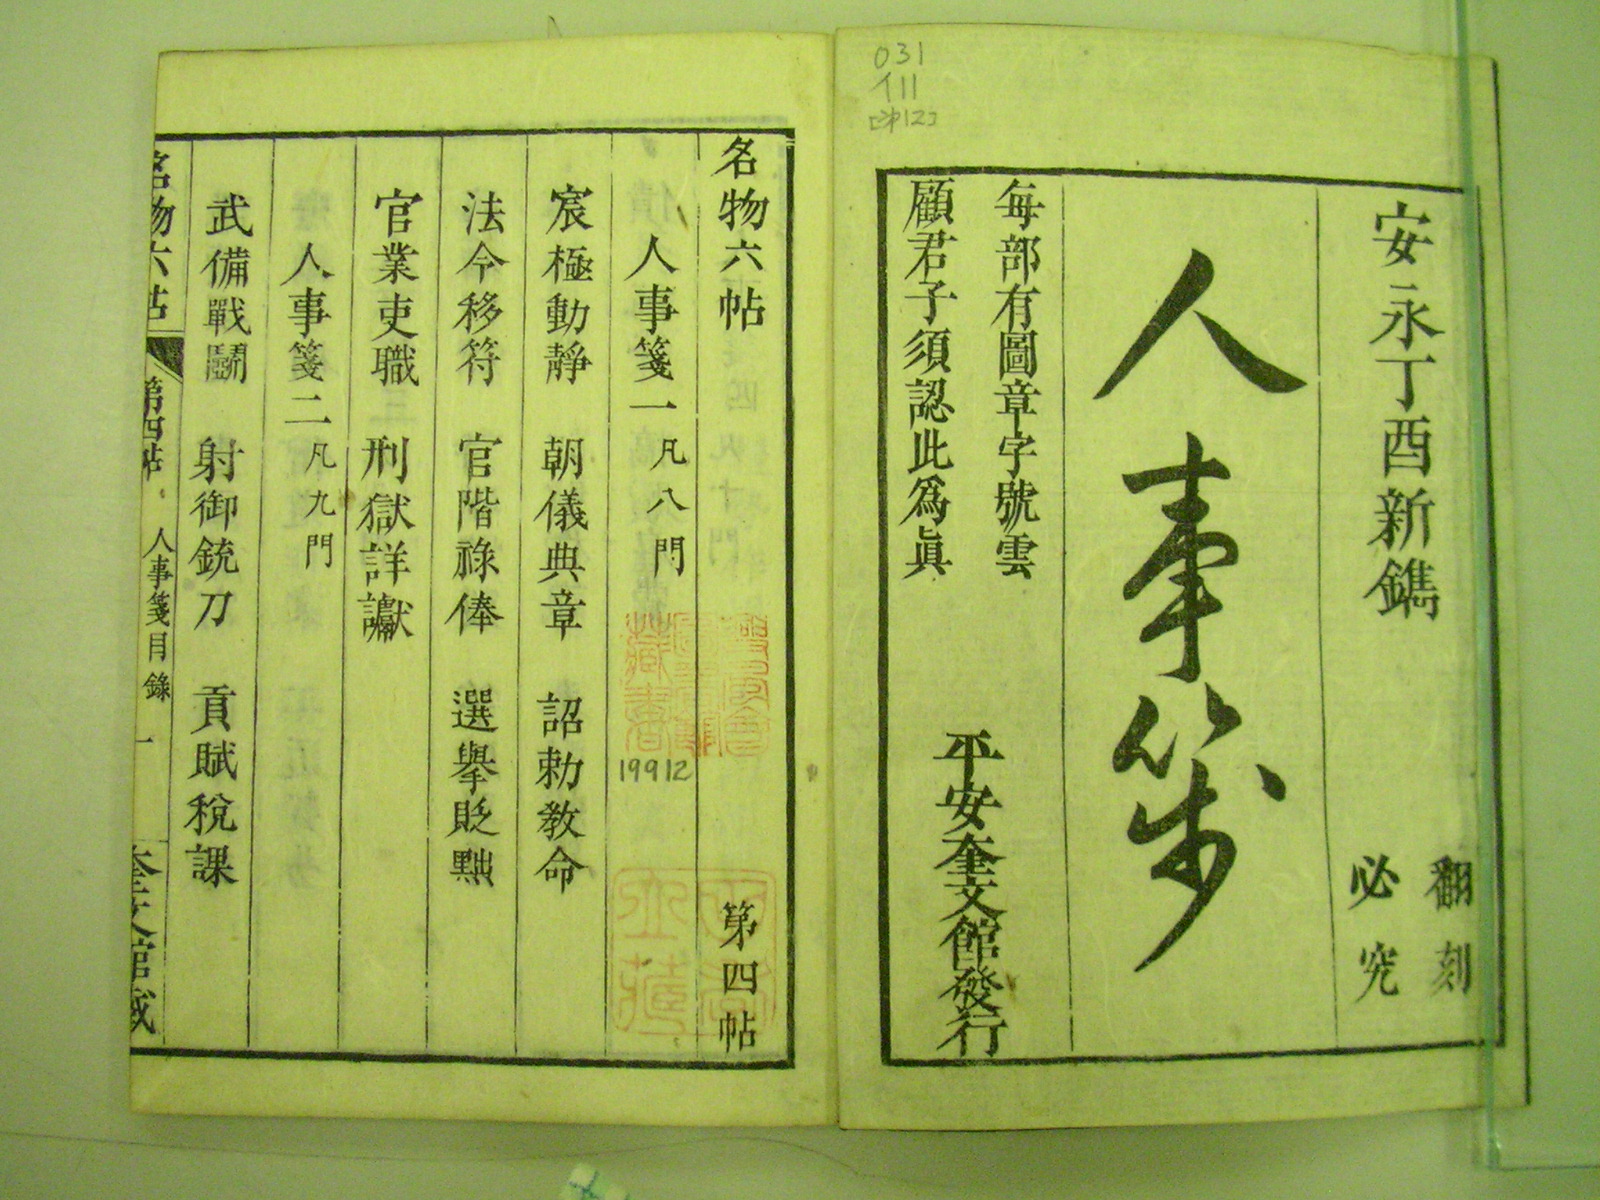 031
イ11
[沖12]
安永丁酉新鐫
翻刻
必究
人事箋
每部有圖章字號雲
顧君子須認此爲眞
平安奎文館發行
名物六帖 第四帖
人事箋一 凡八門
宸極動靜 朝儀典章 詔勅敎命
法令移符 官階祿俸 選擧貶黜
官業吏職 刑獄詳讞
人事箋二 凡九門
武備戰鬭 射御銃刀 貢賦稅課
名物六帖 第四帖 人事箋目錄 一 奎文館藏
藏書
19912